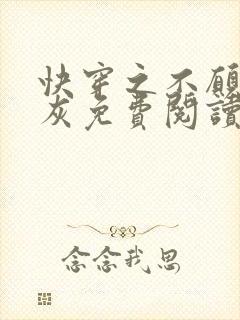 快穿之不願
灰免費閱讀
念念我思